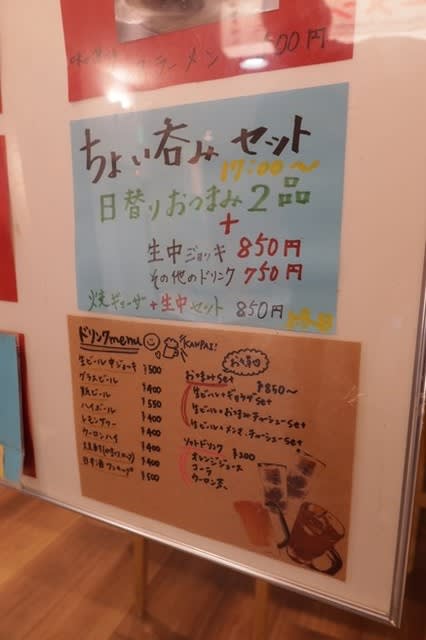 ラーメン 500円
ちょい呑みセット
17:00〜
日替りおつまみ2品
+
生中ジョッキ 850円
その他のドリンク 750円
焼ギョーザ+生中セット 850円
ドリンクmenu KANPAI!
生ビール中ジョッキ ¥500
グラスビール ¥400
瓶ビール ¥550
ハイボール ¥400
レモンサワー ¥400
ウーロンハイ ¥400
¥400
日本酒ワンカップ ¥500
お得
おつまみset ¥850〜
生ビール+ギョウザset
生ビール+おつまみチャーシューset
生ビール+メンマ、チャーシューset
ソフトドリンク ¥200
オレンジジュース
コーラ
ウーロン茶